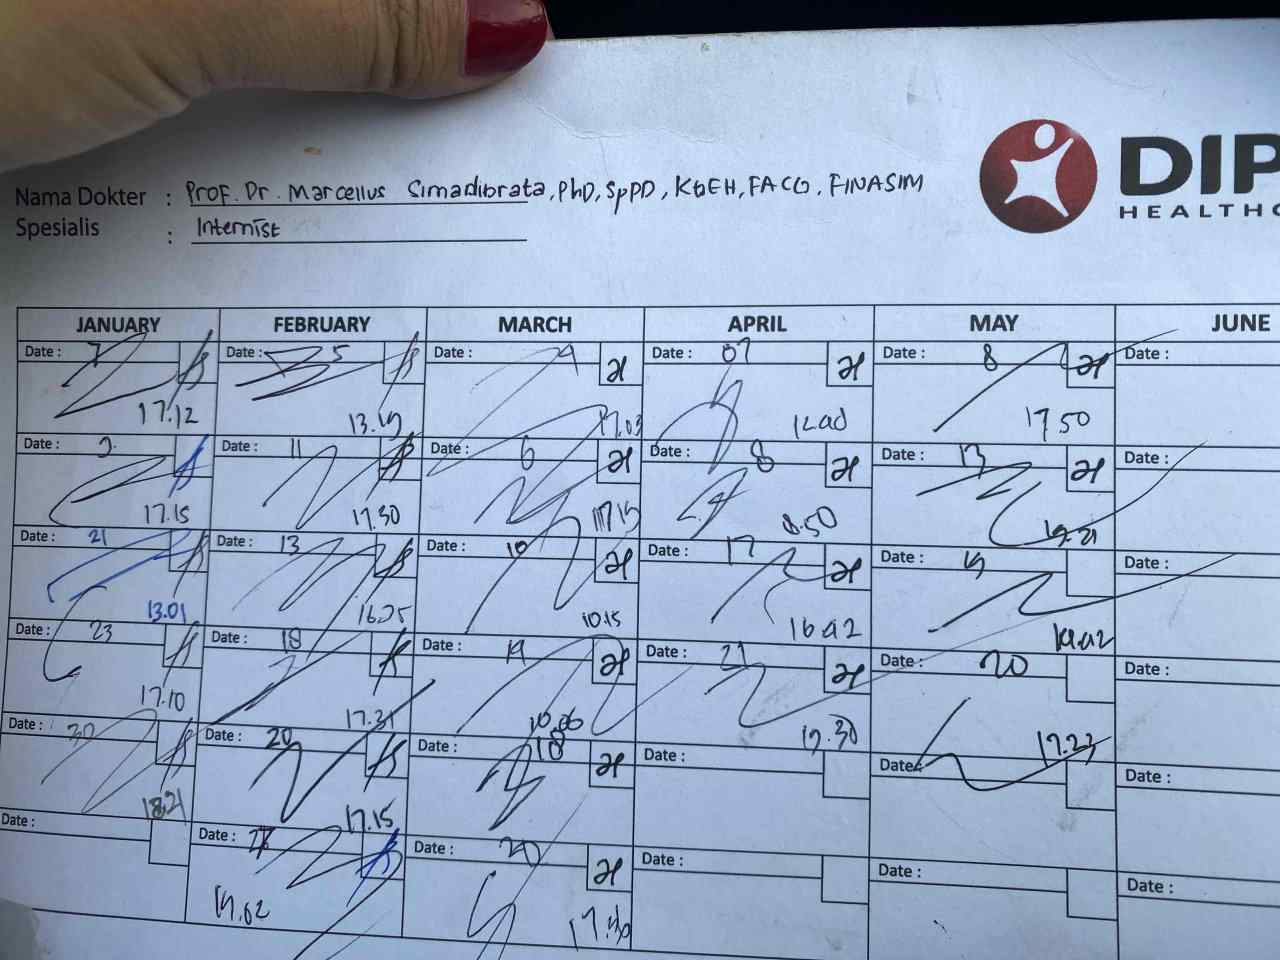 DIP
HEALTHC
Nama Dokter : Prof. Dr. Marcellus Simadibrata, PhD, SpPD, KGEH, FACG, FINASIM
Spesialis : Internist
JANUARY FEBRUARY MARCH APRIL MAY JUNE
Date : 7 Date : 5 Date : 4 Date : 07 Date : 8 Date :
17.12 17.03 17.50
Date : Date : 11 Date : 6 Date : 8 Date : 13 Date :
17.15 17.30 17.15 8.50
Date : 21 Date : 13 Date : 10 Date : 17 Date : Date :
13.01 16.25 10.15 16.02
Date : 23 Date : 18 Date : Date : 21 Date : 20 Date :
17.10 17.31 10.06 17.30 17.23
Date : 30 Date : 20 Date : 18 Date : Date : Date :
18.21 17.15
Date : Date : Date : 20 Date : Date : Date :